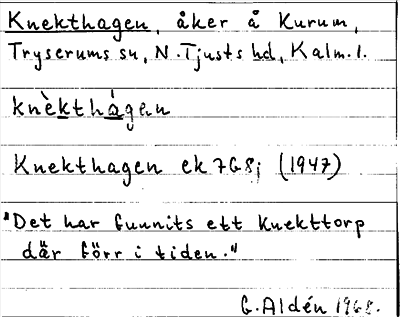 Knekthagen, åker å Kurum,
Tryserums sn, N. Tjusts hd, Kalm. l.
knèkthágen
Knekthagen ek 7G8i (1947)
"Det har funnits ett knekttorp
där förr i tiden."
G. Aldén 1968.